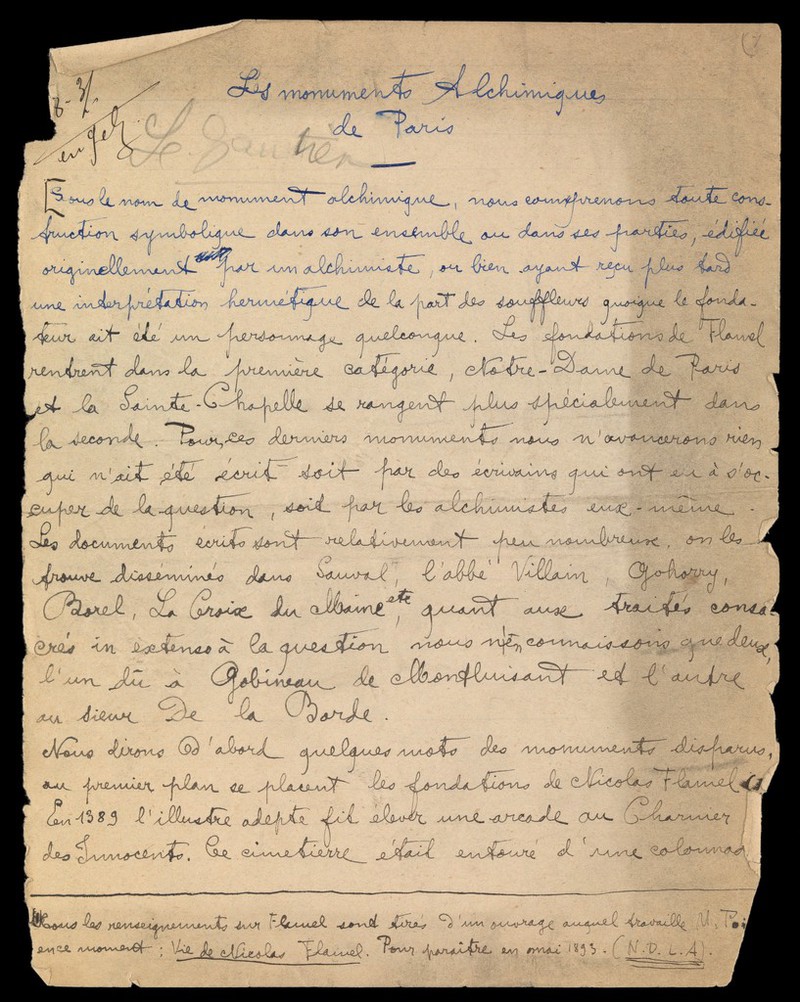 Les monuments Alchimiques
de Paris
[Sous le nom de monument alchimique, nous comprenons toute cons-
truction symbolique dans son ensemble ou dans ses parties, édifiée
originellement par un alchimiste, ou bien ayant reçu plus tard
une interprétation hermétique de la part des souffleurs quoique le fonda-
teur ait été un personnage quelconque. Les fondations de Flamel
rentrent dans la première catégorie, Notre-Dame de Paris
et la Sainte-Chapelle se rangent plus spécialement dans
la seconde. Pour ces derniers monuments nous n'avancerons rien
qui n'ait été écrit soit par des écrivains qui ont eu à s'oc-
cuper de la question, soit par les alchimistes eux-même.
Les documents écrits sont relativement peu nombreux. on les
trouve disséminés dans Sauval, l'abbé Villain, Gohorry,
Borel, La Croix du Maine etc, quant aux traités consa-
crés in extenso à la question nous n'en connaissons que deux,
l'un dû à Gobineau de Montluisant et l'autre
au sieur De la Borde.
Nous dirons d'abord quelques mots des monuments disparus,
au premier plan se placent les fondations de Nicolas Flamel (1)
En 1389 l'illustre adepte fit elever une arcade au Charnier
des Innocents. Ce cimetierre était entouré d'une colonnad
Tous les renseignements sur Flamel sont tirés d'un ouvrage auquel travaille M. Poi
en ce moment : Vie de Nicolas Flamel. Pour paraitre en mai 1893. (N.D.L.A).